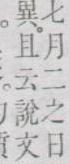 七月二之日
異。且云說文